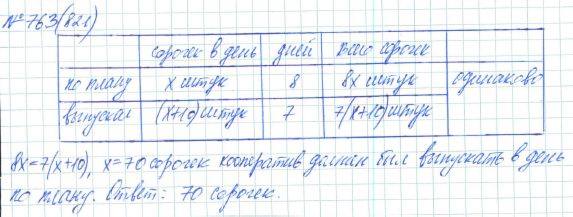 № 763(821)
сорочек в день дней всего сорочек
по плану х штук 8 8х штук одинаково
выпускал (х+10) штук 7 7(х+10) штук
8х=7(х+10), х=70 сорочек кооператив должен был выпускать в день
по плану. Ответ: 70 сорочек.